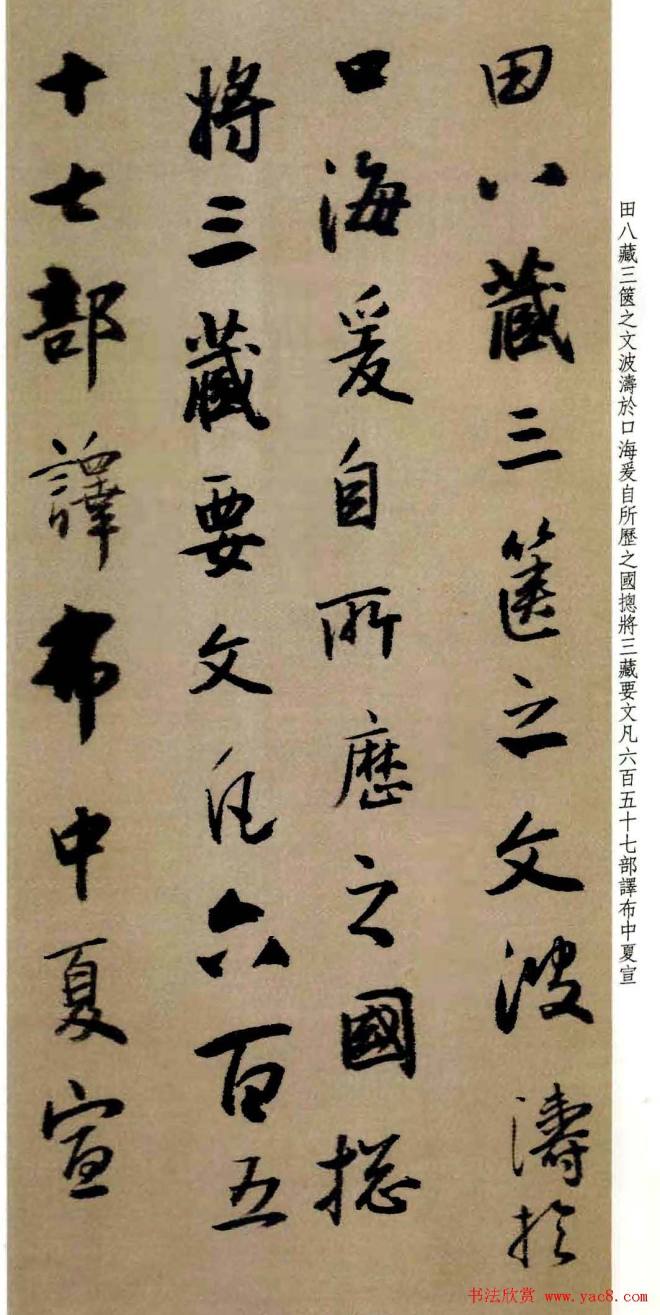 田八藏三篋之文波濤於
口海爰自所歷之國摠
將三藏要文凡六百五
十七部譯布中夏宣
田八藏三篋之文波濤於口海爰自所歷之國摠將三藏要文凡六百五十七部譯布中夏宣
书法欣赏 www.yac8.com